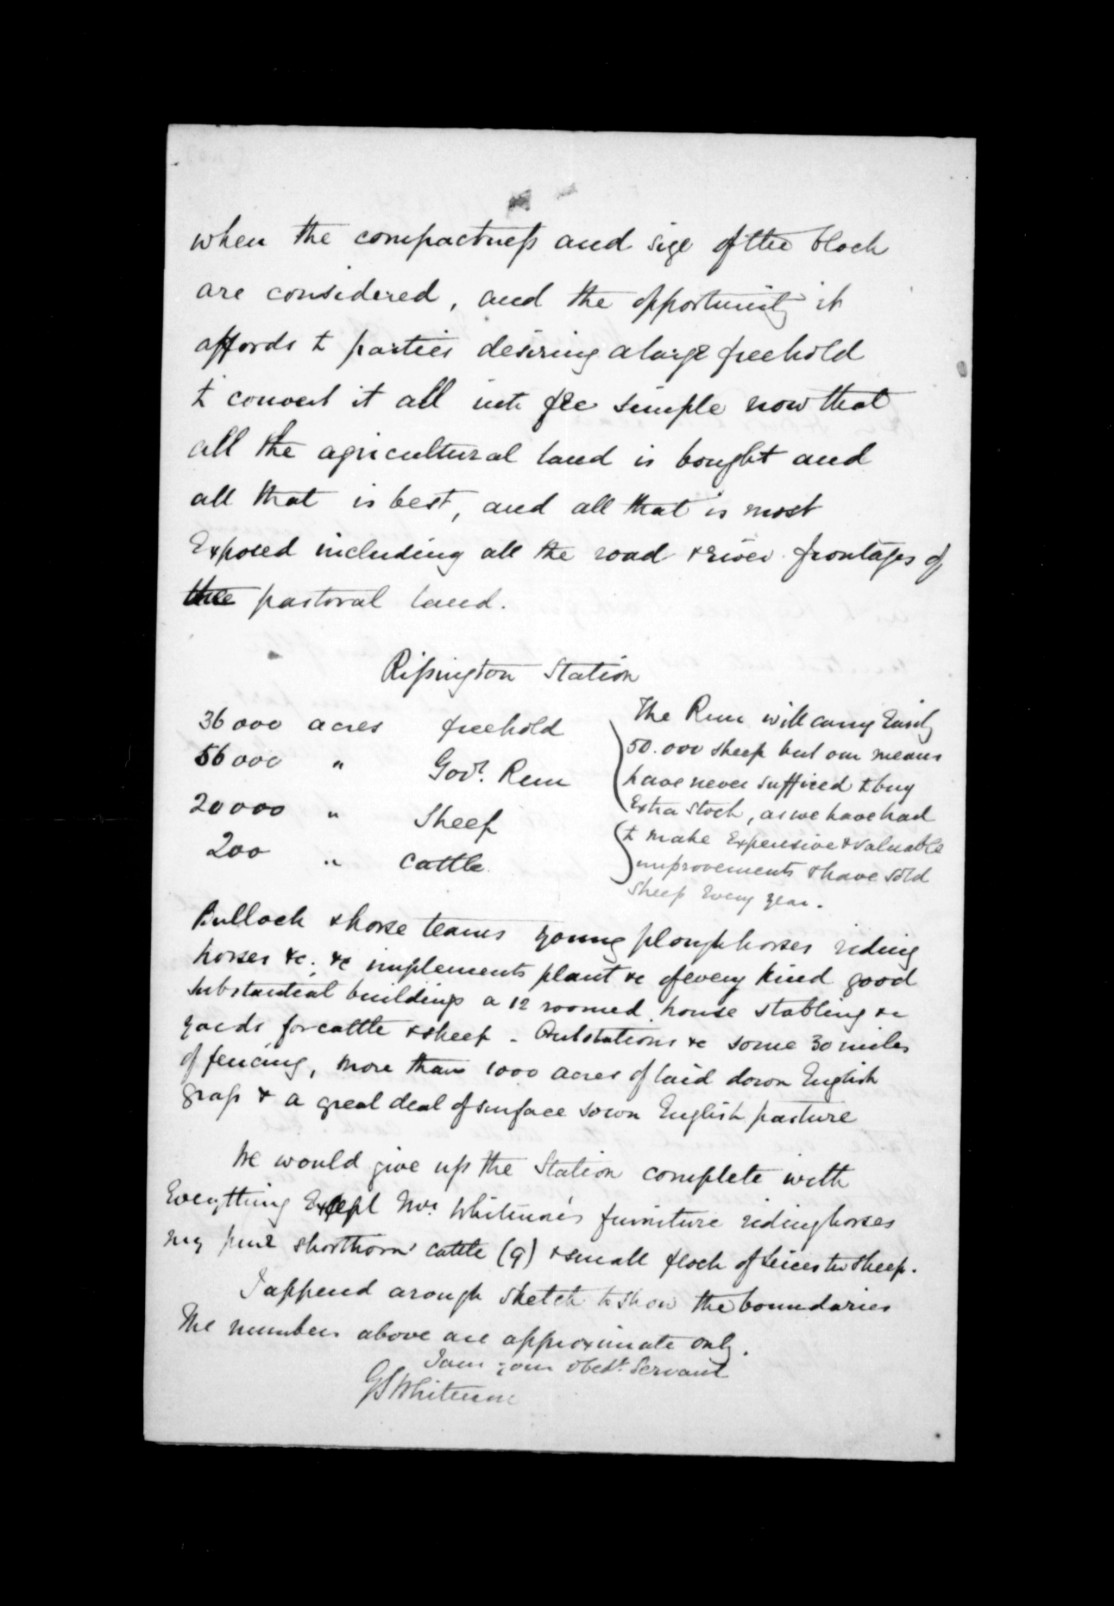 when the compactness and size of the block
are considered, and the opportunity it
affords to parties desiring a large freehold
to convert it all into fee simple now that
all the agricultural land is bought and
all that is best, and all that is most
Exposed including all the road & river frontages of
the pastoral land.
Rissington Station
36000 acres freehold
56000 " Govt. Run
20000 " Sheep
200 " cattle
The Run will carry Easily
50.000 sheep but our means
have never sufficed to buy
Extra Stock, as we have had
to make Expensive & valuable
improvements & have sold
Sheep Every year.
Bullock & horse teams young plough horses riding
horses &c. &c implements plant &c of every kind good
Substantial buildings a 12 roomed house stabling &c
yards for cattle & sheep - Outstations &c some 30 miles
of fencing, more than 1000 acres of laid down English
grass & a great deal of surface sown English pasture
We would give up the Station complete with
Everything Except Mrs Whitmore's furniture riding horses
my pure shorthorn cattle (9) & small flock of Leicester sheep.
I append a rough sketch to show the boundaries
The numbers above are approximate only.
I am your obedt. Servant
GSWhitmore